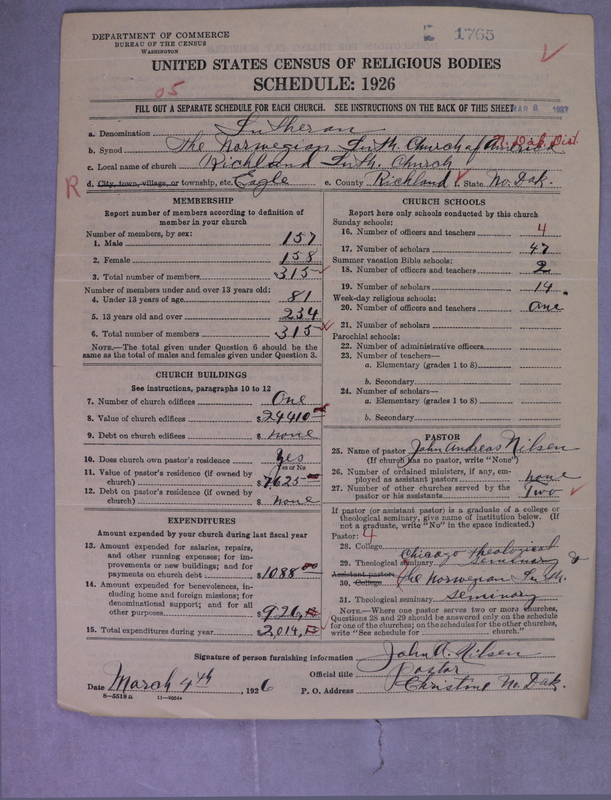 DEPARTMENT OF COMMERCE
BUREAU OF THE CENSUS
WASHINGTON
1765
UNITED STATES CENSUS OF RELIGIOUS BODIES
SCHEDULE: 1926
05
FILL OUT A SEPARATE SCHEDULE FOR EACH CHURCH. SEE INSTRUCTIONS ON THE BACK OF THIS SHEET
MAR 8 1927
a. Denomination Lutheran
b. Synod The Norwegian Luth. Church of America N. Dak. Dist.
c. Local name of church Richland Luth. Church
R d. City, town, village, or township, etc. Eagle e. County Richland f. State No. Dak.
MEMBERSHIP
Report number of members according to definition of member in your church
Number of members, by sex:
1. Male 157
2. Female 158
3. Total number of members 315
Number of members under and over 13 years old:
4. Under 13 years of age 81
5. 13 years old and over 234
6. Total number of members 315
NOTE.—The total given under Question 6 should be the same as the total of males and females given under Question 3.
CHURCH BUILDINGS
See instructions, paragraphs 10 to 12
7. Number of church edifices One
8. Value of church edifices $24410
9. Debt on church edifices $ none
10. Does church own pastor's residence Yes
Yes or No
11. Value of pastor's residence (if owned by church) $7625
12. Debt on pastor's residence (if owned by church) $ none
EXPENDITURES
Amount expended by your church during last fiscal year
13. Amount expended for salaries, repairs, and other running expenses; for improvements or new buildings; and for payments on church debt $1088 00
14. Amount expended for benevolences, including home and foreign missions; for denominational support; and for all other purposes $926.
15. Total expenditures during year $2,014.
CHURCH SCHOOLS
Report here only schools conducted by this church
Sunday schools:
16. Number of officers and teachers 4
17. Number of scholars 47
Summer vacation Bible schools:
18. Number of officers and teachers 2
19. Number of scholars 14
Week-day religious schools:
20. Number of officers and teachers One
21. Number of scholars
Parochial schools:
22. Number of administrative officers
23. Number of teachers—
a. Elementary (grades 1 to 8)
b. Secondary
24. Number of scholars—
a. Elementary (grades 1 to 8)
b. Secondary
PASTOR
25. Name of pastor John Andreas Nilsen
(If church has no pastor, write "None")
26. Number of ordained ministers, if any, employed as assistant pastors none
27. Number of other churches served by the pastor or his assistants Two
If pastor (or assistant pastor) is a graduate of a college or theological seminary, give name of institution below. (If not a graduate, write "No" in the space indicated.)
Pastor: 4
28. College
29. Theological seminary Chicago Theological Seminary &
Assistant pastor:
30. College The Norwegian Luth.
31. Theological seminary Seminary
NOTE.—Where one pastor serves two or more churches, Questions 28 and 29 should be answered only on the schedule for one of the churches; on the schedules for the other churches, write "See schedule for church."
Signature of person furnishing information John A. Nilsen
Official title Pastor
Date March 4th, 1926 P. O. Address Christine No. Dak.
8—5518a